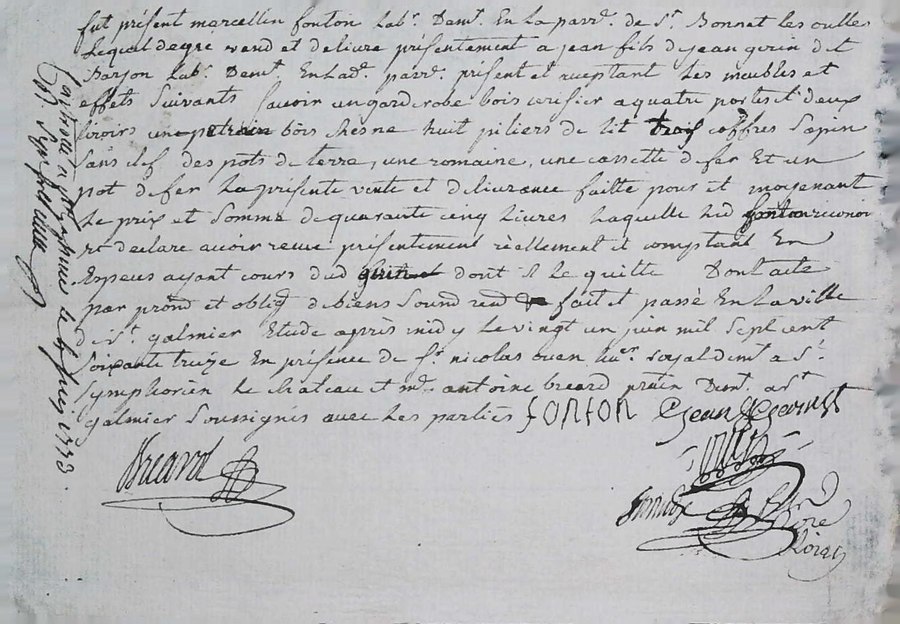 fut présent marcellin fonton lab.r Dem.t En La parr.e de S.t Bonnet les oulles
Lequel degré vend et delivre présentement a jean fils de jean guerin dit
Barjon Lab.r Demt. En Lad.e parr.e présent et acceptant Les meubles et
effets Suivants Savoir un garderobe bois cerisier a quatre portes et deux
tiroirs une petrain bois chesne huit piliers de lit trois coffres Sapin
Sans clef des pots de terre, une romaine, une cassette de fer Et un
pot de fer La présente vente et delivrance faitte pour et moyenant
Le prix et Somme de quarante cinq Livres Laquelle led fonton reconoi
et declare avoir reçue présentement réellement et comptant En
Especes ayant cours dud guerin dont il Le quitte Dont acte
par prom et oblig de biens Soum ren fait et passé En La ville
de S.t galmier Etude après midy Le vingt un juin mil Sept cent
Soixante treize En présence de Sr nicolas demt a St
Symphorien Le chateau et me antoine breard Demt a St
galmier Soussignés avec Les parties fonton Jean
Breard
Controllé a St galmier Le juin 1773